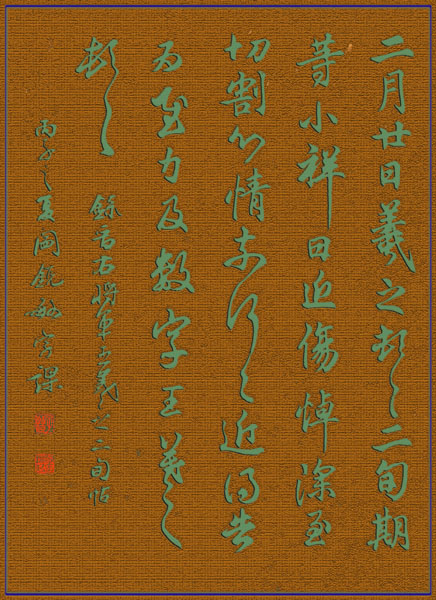 二月廿日羲之頓首二旬期
等小祥日近傷悼深至
切割心情奈何奈何近得告
為慰力及數字王羲之
頓首
錄晉右將軍王羲之二旬帖
丙子之夏閩銳敏字課